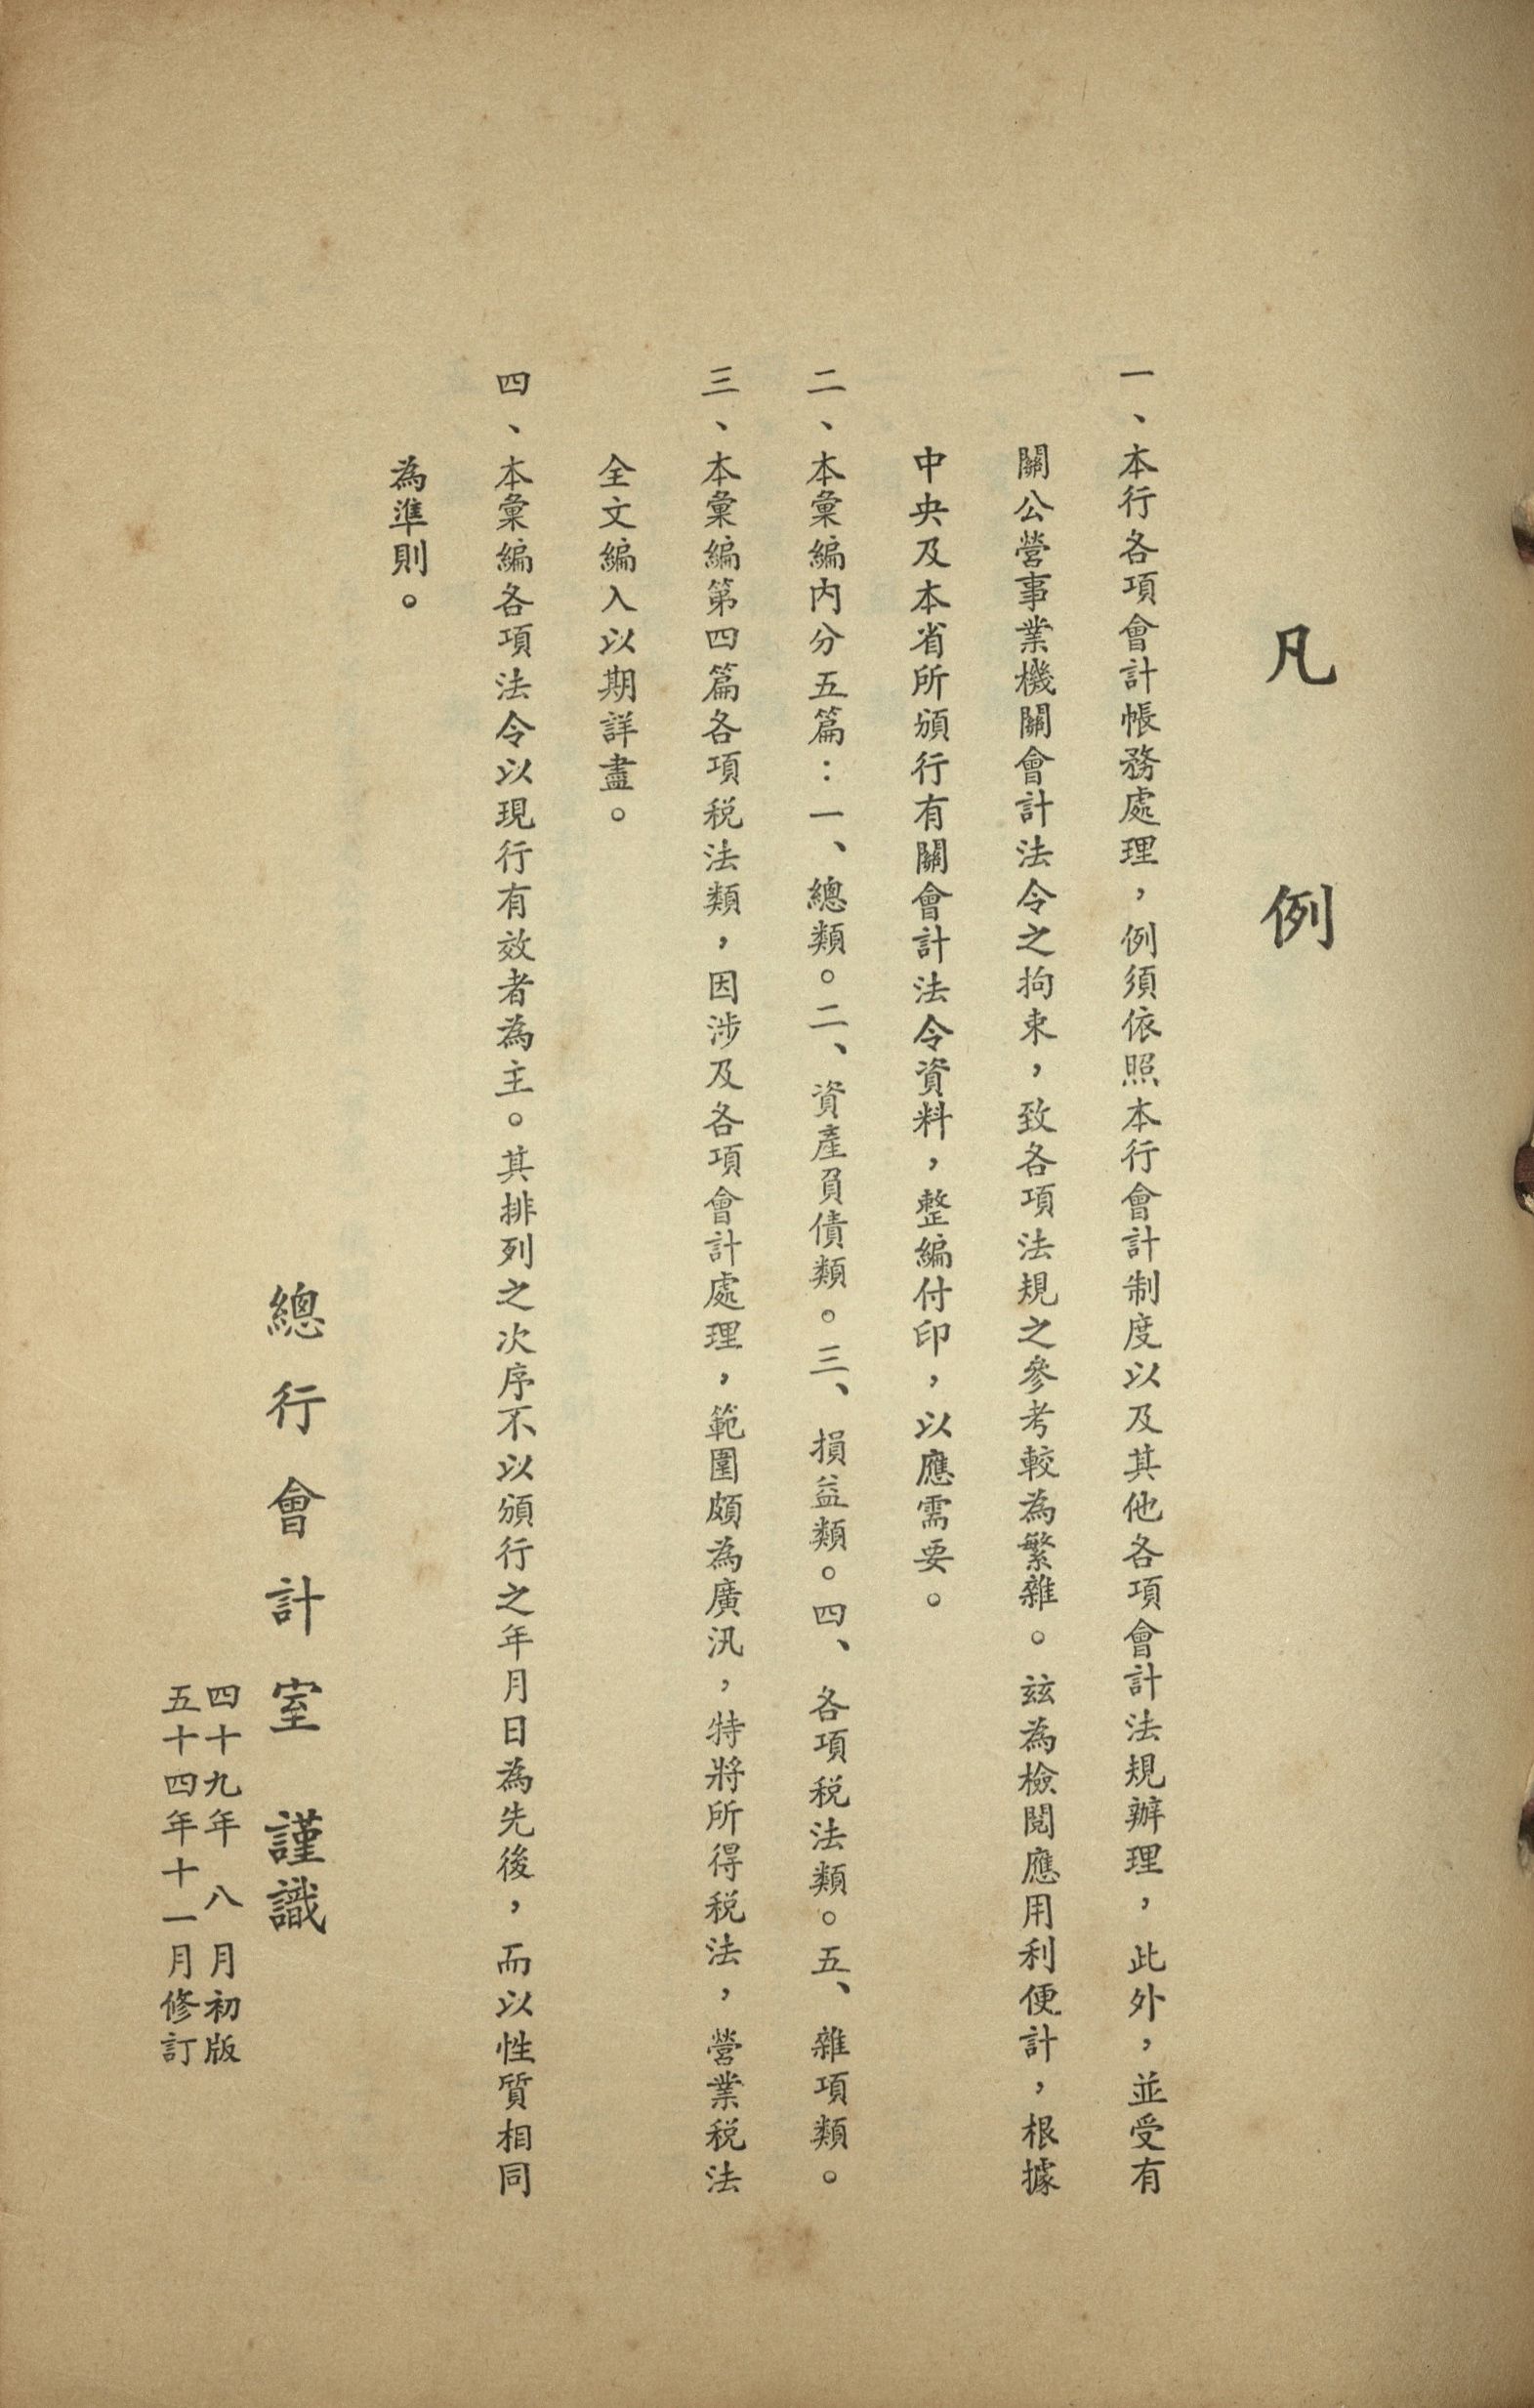 凡例
一、本行各項會計帳務處理，例須依照本行會計制度以及其他各項會計法規辦理，此外，並受有
關公營事業機關會計法令之拘束，致各項法規之參考較為繁雜。玆為檢閱應用利便計，根據
中央及本省所頒行有關會計法令資料，整編付印，以應需要。
二、本彙編內分五篇：一、總類。二、資產負債類。三、損益類。四、各項稅法類。五、雜項類。
三、本彙編第四篇各項稅法類，因涉及各項會計處理，範圍頗為廣汎，特將所得稅法，營業稅法
全文編入以期詳盡。
四、本彙編各項法令以現行有效者為主。其排列之次序不以頒行之年月日為先後，而以性質相同
為準則。
總行會計室 謹識
四十九年 八 月初版
五十四年十一月修訂